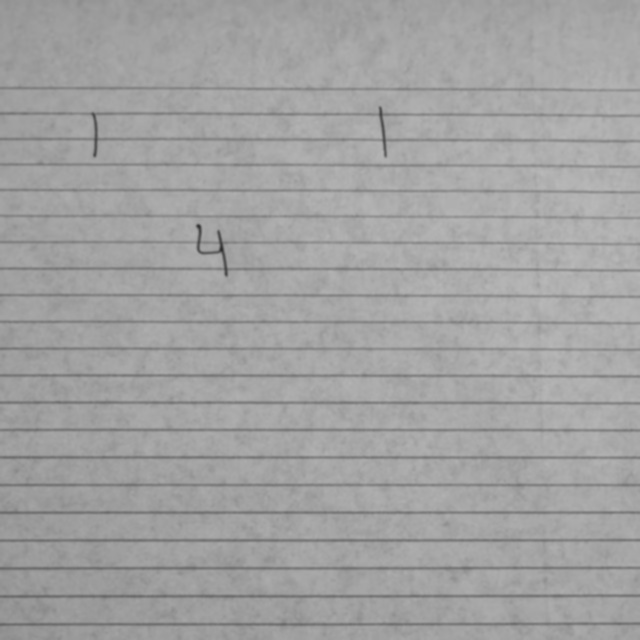 1 1
4